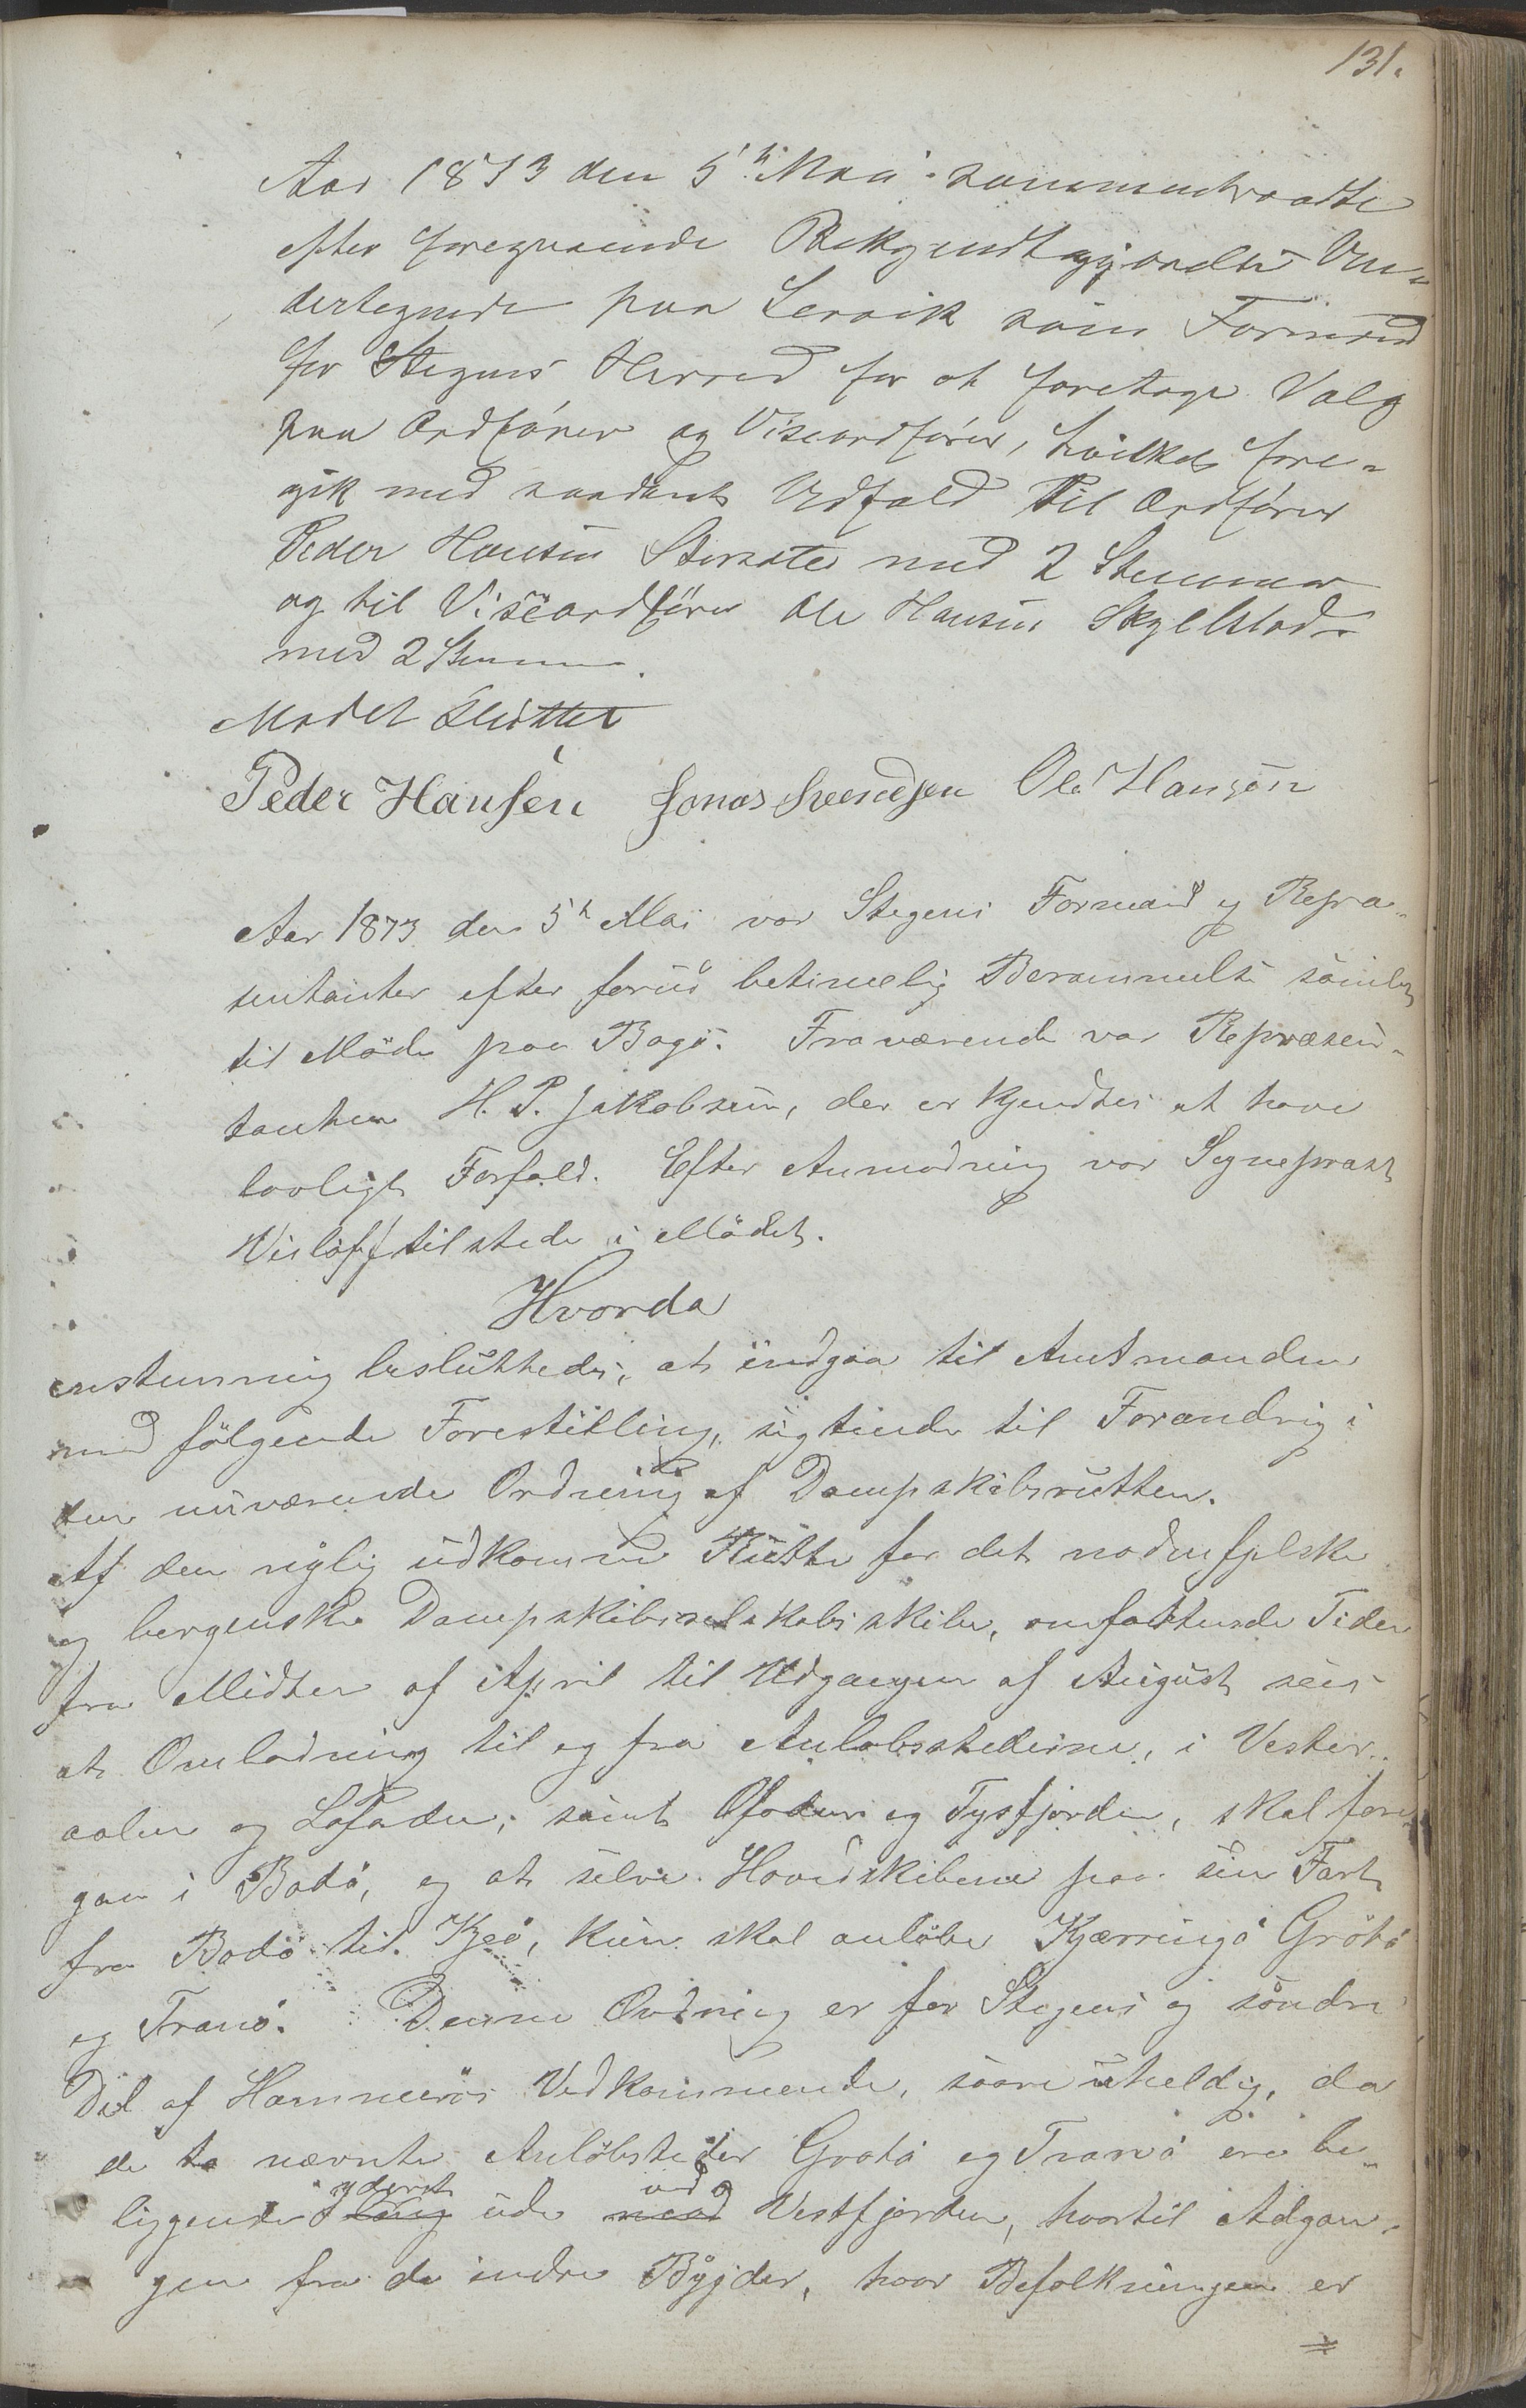 131.
Aar 1873 den 5te Mai sammentraadte
efter foregaaende Bekjendtgjørelse Un-
dertegnede paa Lervik som Formænd
for Stegens Herred for at foretage Valg
paa Ordfører og Viseordfører, hvilket fore-
gik med saadant Udfald Til Ordfører
Peder Hansen Storsæter med 2 Stemmer
og til Viseordfører Ole Hansen Skjelstad
med 2 Stemmer.
Mødet Sluttet
Peder Hansen Jonas Svendsen Ole Hansen
Aar 1873 den 5te Mai var Stegens Formænd og Repræ-
sentanter efter forud betimelig Berammelse samlet
til Møde paa Bogø. Fraværende var Repræsen-
tanten H. P. Jakobsen, der erkjendtes at have
lovligt Forfald. Efter Anmodning var Sognepræst
Wisløff tilstede i Mødet.
Hvorda
enstemmig besluttedes, at indgaa til Amtmanden
med følgende Forestilling, sigtende til Forandrig i
den nuværende Ordning af Dampskibsrutten.
Af den nylig udkomne Rutte for det nordenfjelske
og bergenske Dampskibsselskabs skibe, omfattende Tiden
fra Midten af April til Udgangen af August sees
at Omladning til og fra Anløbsstederne, i Vester-
aalen og Lofoden, samt Ofoden og Tysfjorden, skal fore-
gaa i Bodø, og at selve Hovedskibene paa sin Fart
fra Bodø til Kjeø, kun skal anløbe Kjærringø Grøtø
og Tranø. Denne Ordning er for Stegens og søndre
Del af Hammerøs Vedkommende, saare uheldig, da
de to nævnte Anløbsteder Grøtø og Tranø ere be-
liggende yderst ude ved Vestfjorden, hvortil Adgan-
gen fra de indre Bygder, hvor Befolkningen er